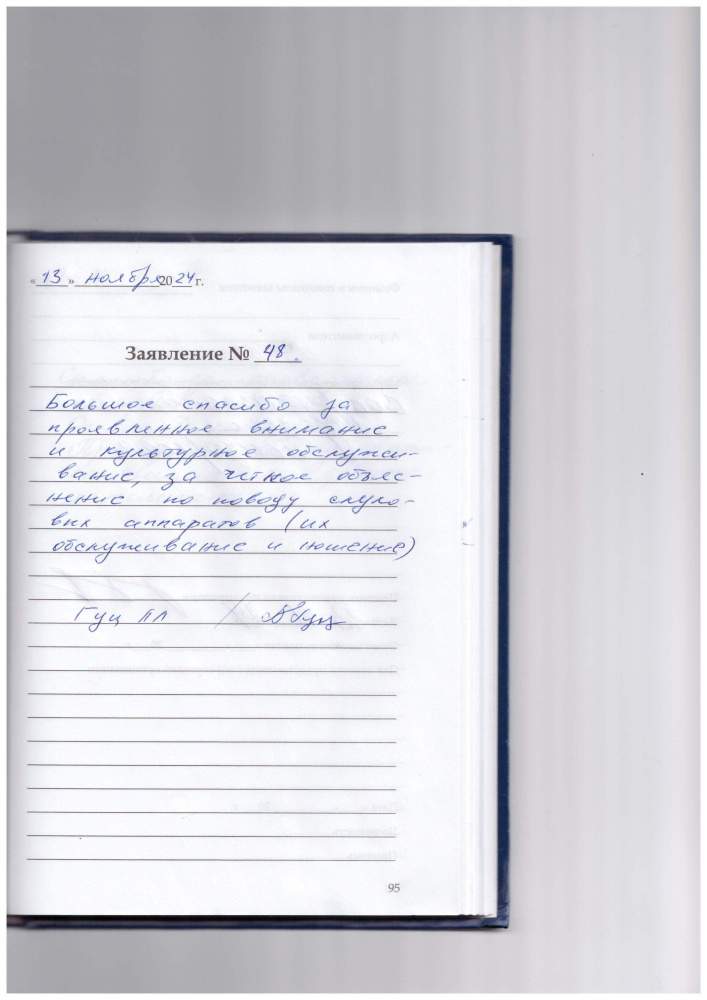 «13» ноября 2024 г.
Заявление № 48
Большое спасибо за
проявленное внимание
и культурное обслужи-
вание, за четкое объяс-
нение по поводу слухо-
вых аппаратов (их
обслуживание и ношение)
Гуц ПЛ /
95